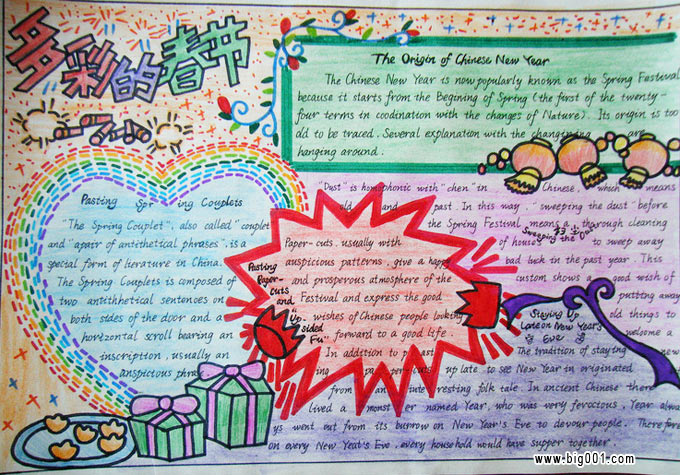 多彩的春节
The Origin of Chinese New Year
The Chinese New Year is now popularly known as the Spring Festival
because it starts from the Begining of Spring (the first of the twenty-
four terms in coodination with the changes of Nature). Its origin is too
old to be traced. Several explanation with the are
hanging around.
Pasting Spr ing Couplets
"The Spring Couplet", also called "couplet
and "apair of antithetical phrases", is a
special form of literature in China.
The Spring Couplets is composed of
two antithhetical sentences on
both sides of the door and a
horizontal scroll bearing an
inscription, usually an
anspictous phras
"Dust" is homophonic with "chen" in Chinese, which means
old and past. In this way, "sweeping the dust" before
the Spring Festival means a thorough cleaning
of house to sweep away
bad luck in the past year. This
custom shows a good wish of
putting away
old things to
welcome a
new
Sweeping the Dust
Pasting
Paper-
cuts
and
"Up
sided
Fu"
Paper-cuts, usually with
auspicious patterns, give a happy
and prosperous atmosphere of the
Festival and express the good
wishes of Chinese people looking
forward to a good life.
In addition to past
ing paper-cuts
Staying Up
Late on New Year's
Eve
The tradition of staying
up late to see New Year in originated
from an inte resting folk tale. In ancient Chinese there
lived a monst er named Year, who was very ferocious. Year alwa
ys went out from its burrow on New Year's Eve to devour people. Therefore
on every New Year's Eve, every household would have supper together.
www.big001.com